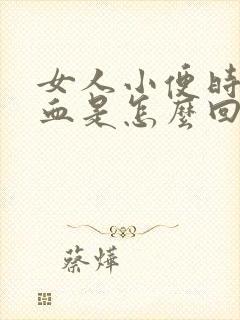 女人小便時
血是怎麼回
蔡燁